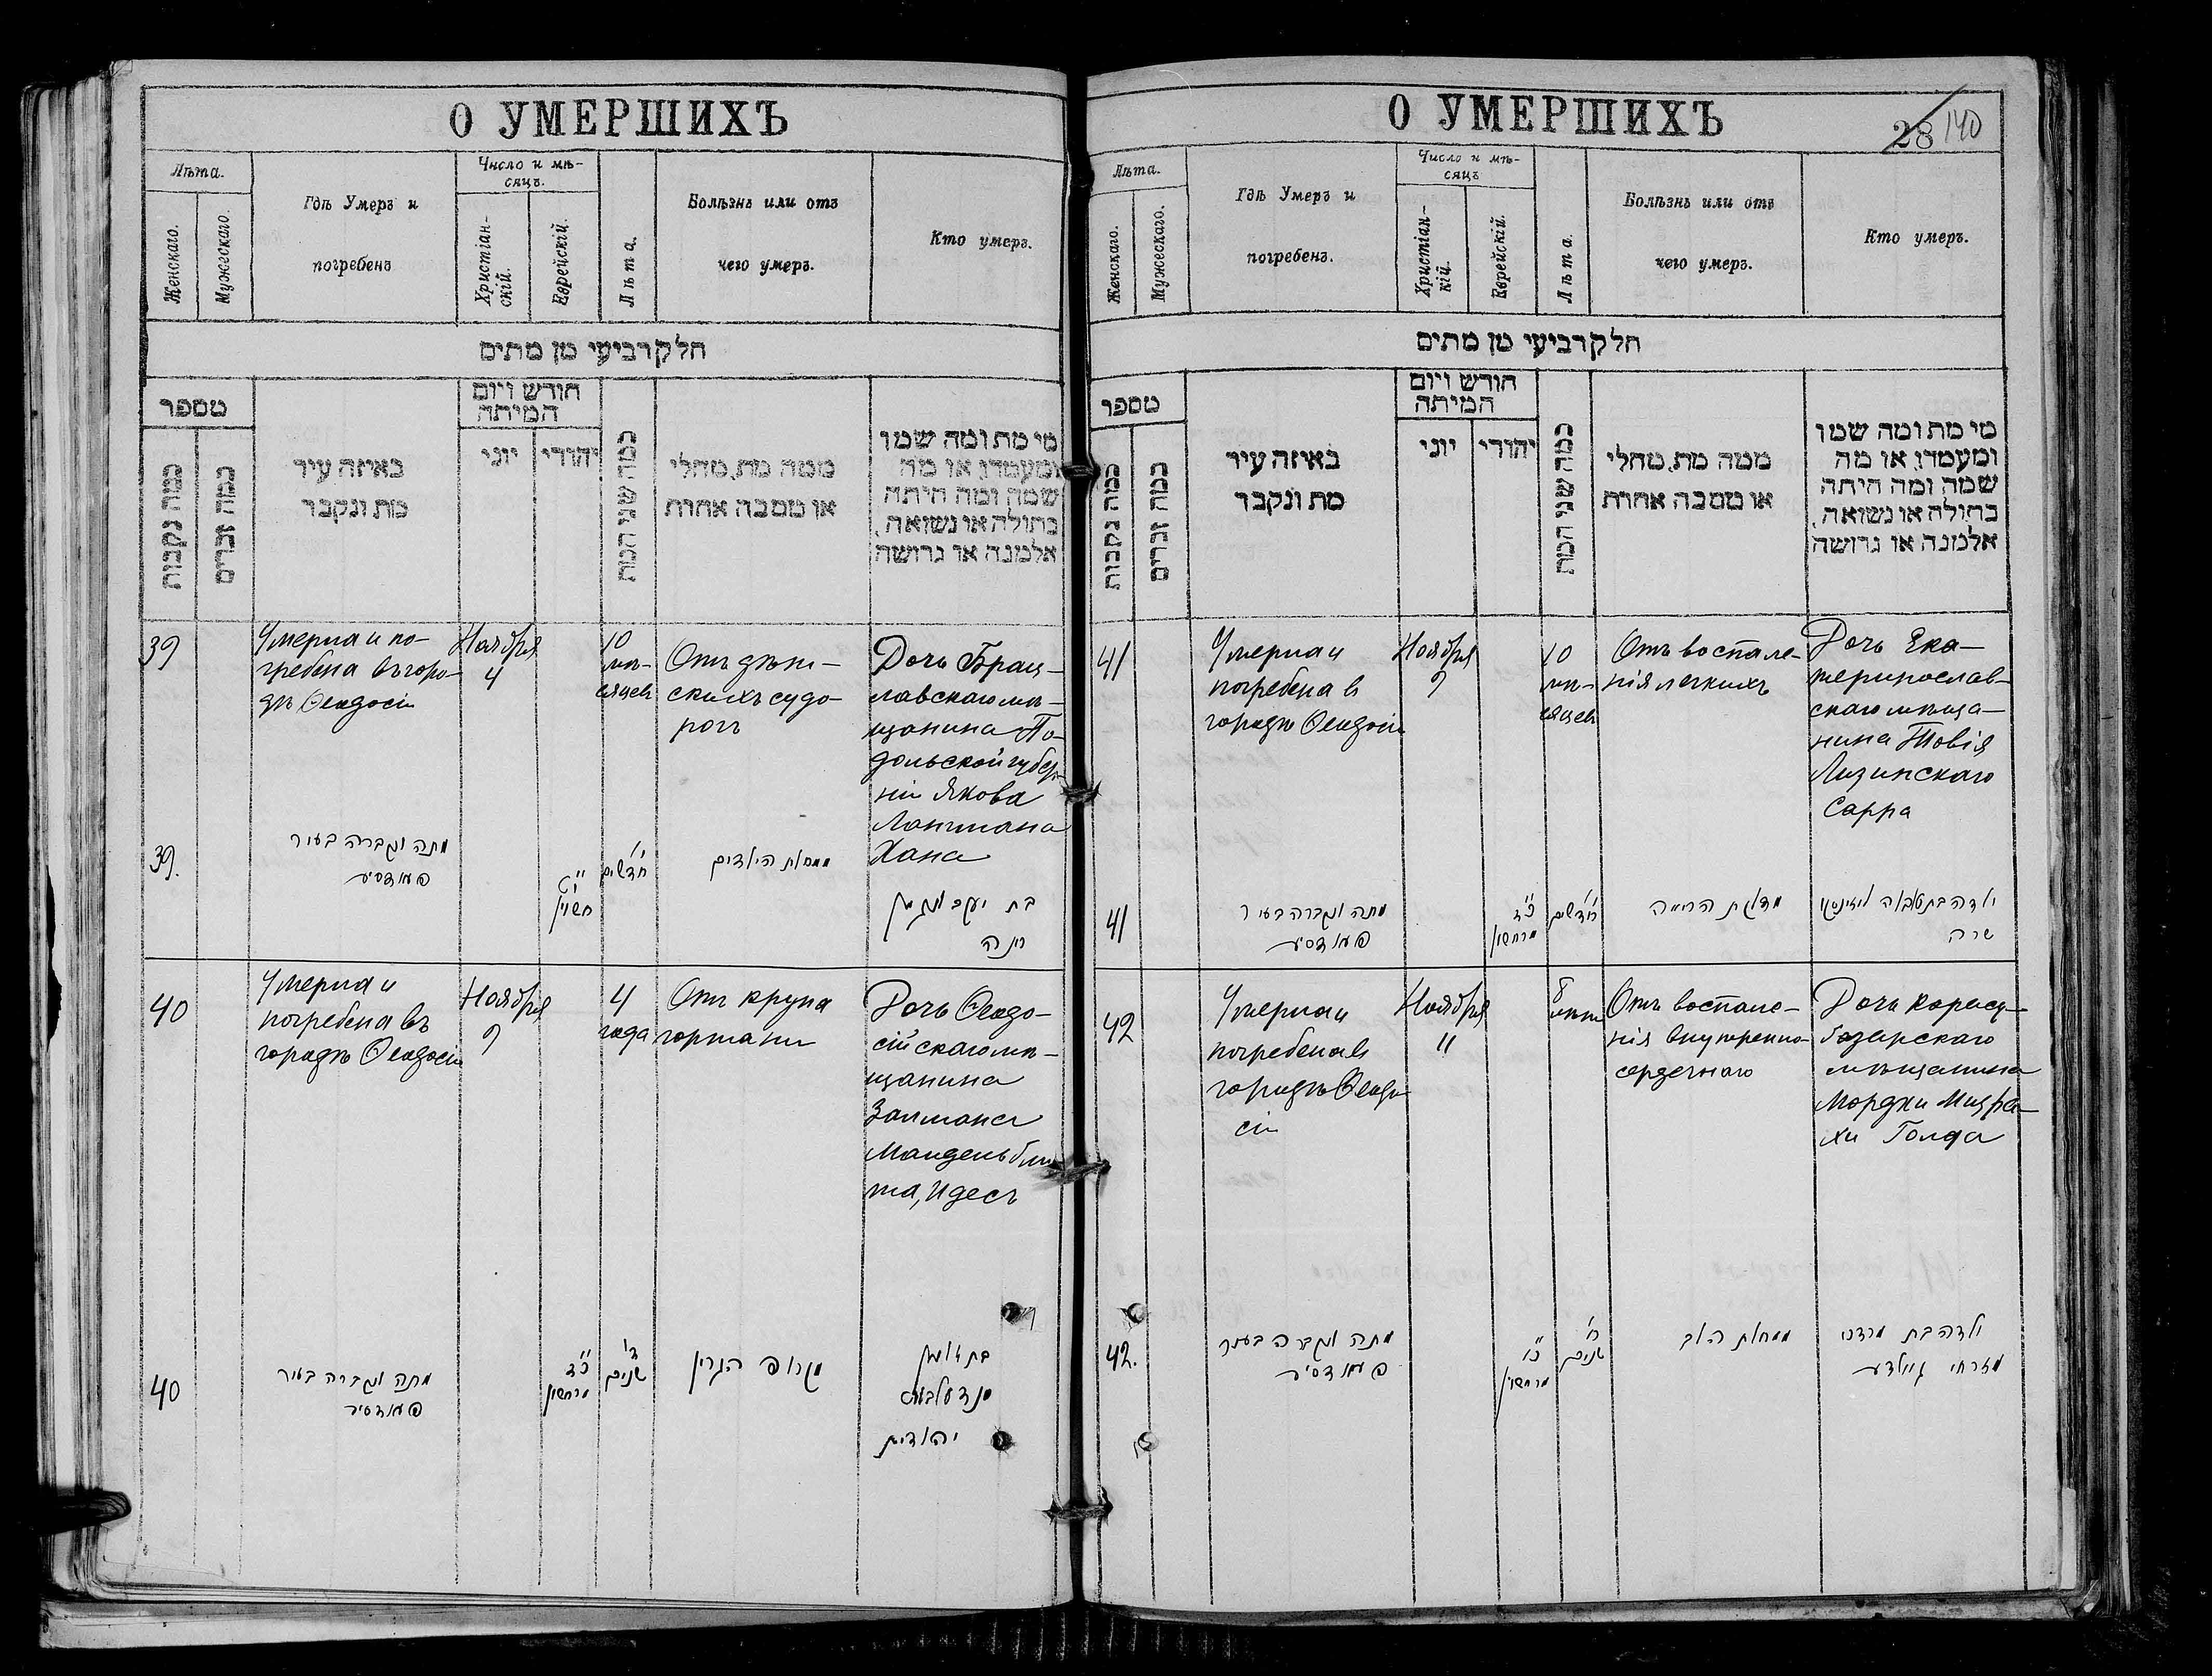 О УМЕРШИХЪ
Лѣта.
Женскаго.
Мужескаго.
Гдѣ Умеръ и
погребенъ
Число и мѣ-
сяцъ.
Христіан-
скій.
Еврейскій.
Лѣта.
Болѣзнь или отъ
чего умеръ.
Кто умеръ.
חלק רביעי מן מתים
מספר
כמה נקבות
כמה זכרים
באיזה עיר
מת ונקבר
חודש ויום
המיתה
יוני
יהודי
כמה שני המת
ממה מת, מחלי
או מסבה אחרת
מי מת ומה שמו
ומעמדו, או מה
שמה ומה היתה
בתולה או נשואה,
אלמנה או גרושה
39
Умерла и по-
гребена въ горо-
дѣ Ѳеодосіи
Ноября
4
10
мѣ-
сяцевъ
Отъ дѣт-
скихъ судо-
рогъ
Дочь Брац-
лавскаго мѣ-
щанина По-
дольской губер-
ніи Якова
Лантмана
Хана
39.
מתה ונקברה בעיר
פעאדסיע
י"ט
חשון
י'
חדשים
ממחלת הילדים
בת יעקב
חנה
40
Умерла и
погребена въ
городѣ Ѳеодосіи
Ноября
9
4
года
Отъ крупа
гортани
Дочь Ѳеодо-
сійскаго мѣ-
щанина
Залмана
Мандельбли-
та, Идесъ
40
מתה ונקברה בעיר
פעאדסיע
כ"ד
מרחשון
ד'
שנים
מקרופ הגרון
בת זלמן
מנדעלבליט
יהודית
О УМЕРШИХЪ
28 140
Лѣта.
Женскаго.
Мужескаго.
Гдѣ Умеръ и
погребенъ.
Число и мѣ-
сяцъ
Христіан-
кій.
Еврейскій.
Лѣта.
Болѣзнь или отъ
чего умеръ.
Кто умеръ.
חלק רביעי מן מתים
מספר
כמה נקבות
כמה זכרים
באיזה עיר
מת ונקבר
חודש ויום
המיתה
יוני
יהודי
כמה שני המת
ממה מת, מחלי
או מסבה אחרת
מי מת ומה שמו
ומעמדו, או מה
שמה ומה היתה
בתולה או נשואה,
אלמנה או גרושה
41
Умерла и
погребена в
городѣ Ѳеодосіи
Ноября
9
10
мѣ-
сяцевъ
Отъ воспале-
нія легкихъ
Дочь Ека-
теринослав-
скаго мѣща-
нина Товія
Лизинскаго
Сарра
41
מתה ונקברה בעיר
פעאדסיע
כ"ד
מרחשון
י'
חדשים
מדלקת הריאה
ילדה בת טוביה ליזינסקי
שרה
42
Умерла и
погребена в
городѣ Ѳеодо-
сіи
Ноября
11
8
лѣтъ
Отъ воспале-
нія внутренно-
сердечнаго
Дочь Карасу-
базарскаго
мѣщанина
Мордки Мизра-
хи Голда
42.
מתה ונקברה בעיר
פעאדסיע
כ"ו
מרחשון
ח'
שנים
ממחלת הלב
ילדה בת מרדכי
מזרחי גאלדע